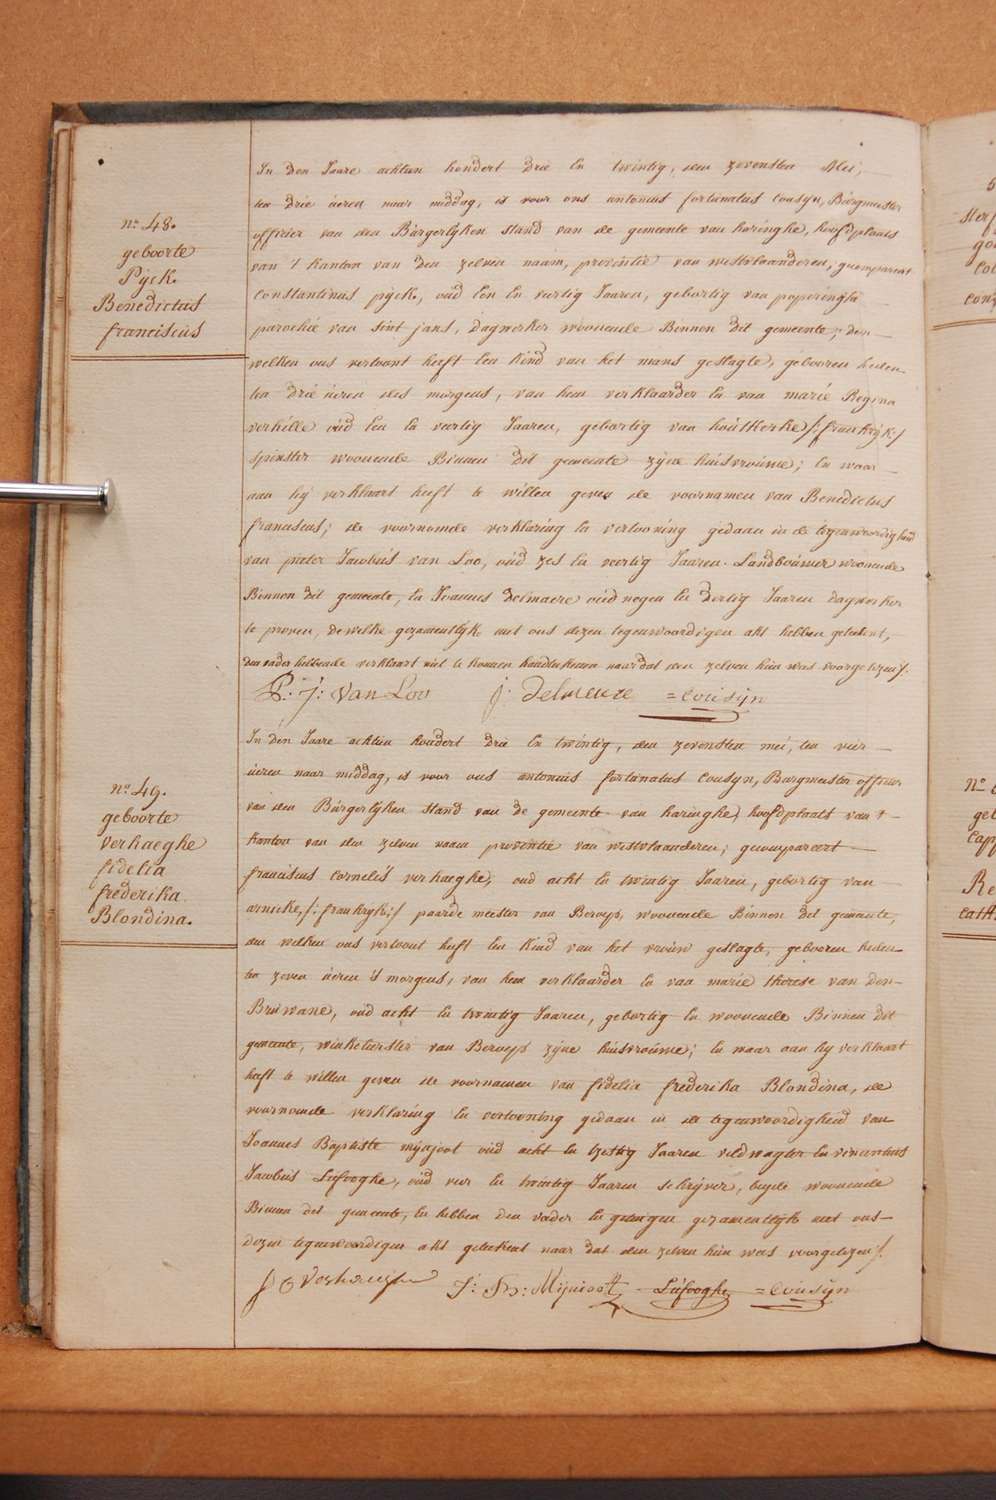 nº 48.
geboorte
Pijck.
Benedictus
franciscus
In den Jaare achtien hondert drie en twintig, den zevensten Mei,
ten drie ueren naar middag, is voor ons antonius fortunatus Cousyn, Burgmeester
officier van den Burgerlyken stand van de gemeente van haringhe, hoofdplaats
van 't kanton van den zelven naam, provintie van westvlaanderen, gecompareert
Constantinus pijck, oud een en veertig Jaaren, gebortig van poperingha
parochie van sint jans, dagwerker woonende Binnen dit gemeente, den
welken ons vertoont heeft een kind van het mans geslagte, gebooren heden
ten drie ueren des morgens, van hem verklaarder en van marie Regina
verhille oud een en veertig Jaaren, gebortig van houtkerke /:frankryk:/
spinster woonende Binnen dit gemeente zijne huisvrouwe; en waar
aan hij verklaart heeft te willen geven de voornamen van Benedictus
franciscus; de voornomde verklaring en vertooning gedaan in de tegenwoordigheid
van pieter Jacobus van Loo, oud zes en veertig Jaaren Landbouwer woonende
Binnen dit gemeente, en Joannes Delmaere oud negen en dertig Jaaren dagwerker
te proven, dewelke gezamentlyk met ons dezen tegenwoordigen akt hebben geteekent,
den vader hebbende verklaart niet te konnen handteekenen naar dat den zelven hun was voorgelezen /.
P: J: Van Loo J: Delmeure = Cousijn
nº 49.
geboorte
verhaeghe
fidelia
frederika
Blondina.
In den Jaare achtien hondert drie en twintig, den zevensten mei, ten vier
ueren naar middag, is voor ons antonius fortunatus Cousyn, Burgmeister officier
van den Burgerlyken stand van de gemeente van haringhe, hoofdplaats van 't
kanton van den zelven naam provintie van westvlaanderen; gecompareert
franciscus cornelis verhaeghe, oud acht en twintig Jaaren, gebortig van
arneke, /:frankryk:/ paarde meester van Beroep, woonende Binnen dit gemeente,
den welken ons vertoont heeft een kind van het vrouw geslagte, gebooren heden
ten zeven ueren 's morgens, van hem verklaarder en van marie therese van den
Bruwane, oud acht en twintig Jaaren, gebortig en woonende Binnen dit
gemeente, winkelierster van Beroep zijne huisvrouwe; en waar aan hy verklaart
heeft te willen geven de voornamen van fidelia frederika Blondina, de
voornomde verklaring en vertooning gedaan in de tegenwoordigheid van
Joannes Baptiste mijnjoot oud acht en tzestig Jaaren veldwagter en vincentius
Jacobus Lefooghe, oud vier en twintig Jaaren schrijver, beyde woonende
Binnen dit gemeente, en hebben den vader en getuigen gezamentlyk met ons
dezen tegenwoordigen akt geteekent naar dat den zelven hun was voorgelezen /.
f C Verhaeghe J: B: Mijnioot Lefooghe = Cousijn